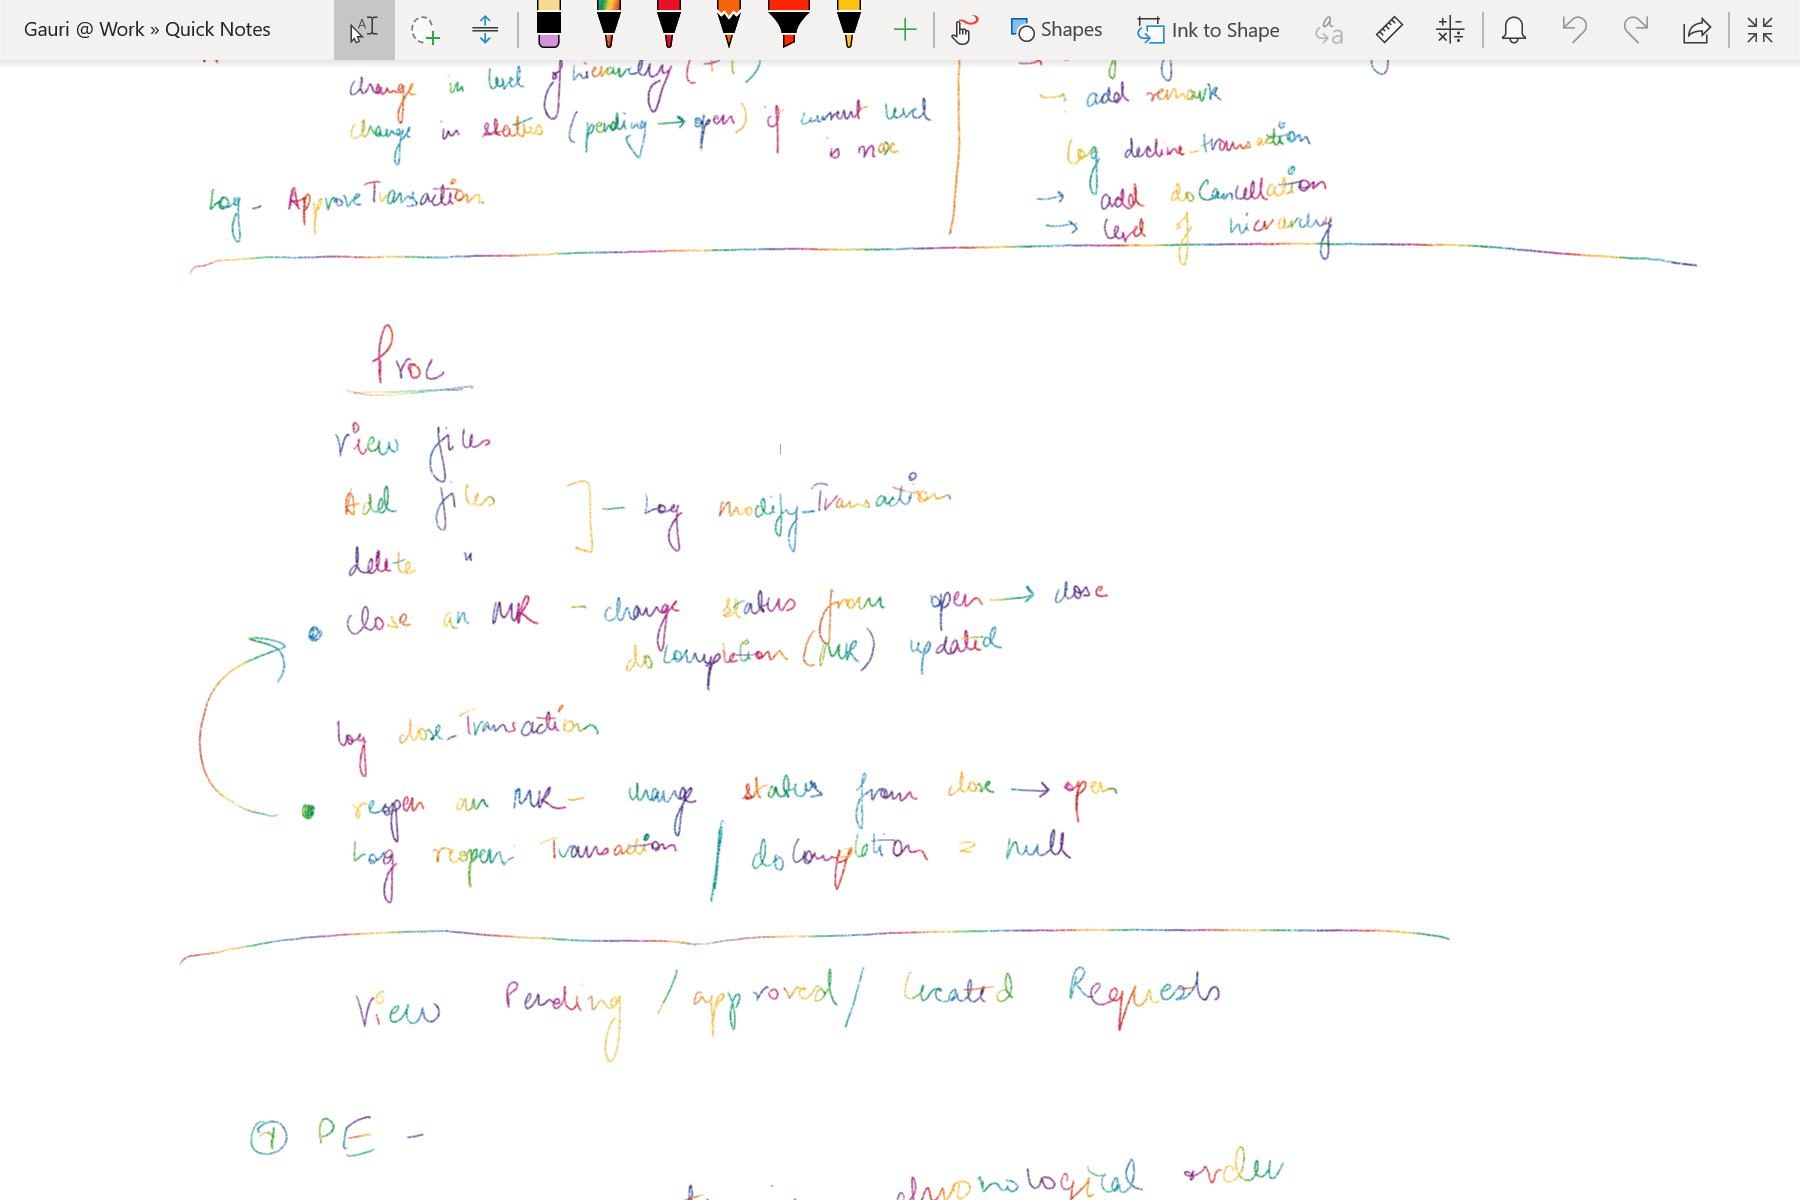 Gauri @ Work » Quick Notes
Shapes
Ink to Shape
change in level of hierarchy (+1)
change in status (pending → open) if current level
is max
Log - ApproveTransaction
→ add remark
Log decline_transaction
→ add doCancellation
→ level of hierarchy
Proc
View files
Add files ] — Log modify_Transaction
delete "
• Close an MR - change status from open → close
doCompletion (MR) updated
log close_Transaction
• reopen an MR - change status from close → open
Log reopen Transaction / doCompletion = null
View Pending / approved / Created Requests
PE -
chronological order